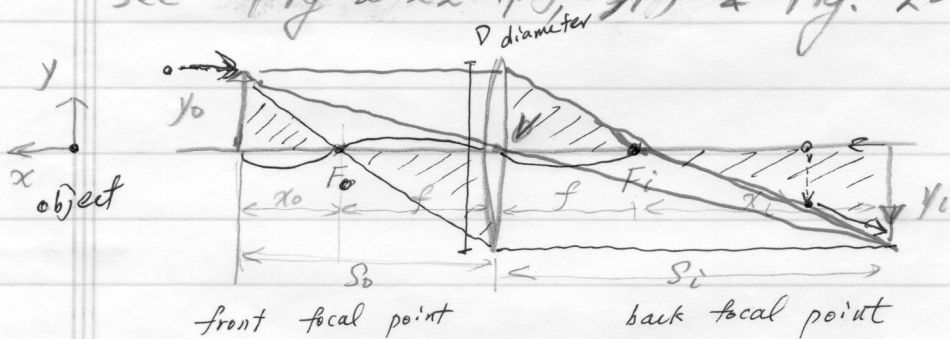 D diameter
y
y₀
x
object
V
F₀
Fᵢ
yᵢ
x₀
f
f
xᵢ
S₀
Sᵢ
front focal point
back focal point